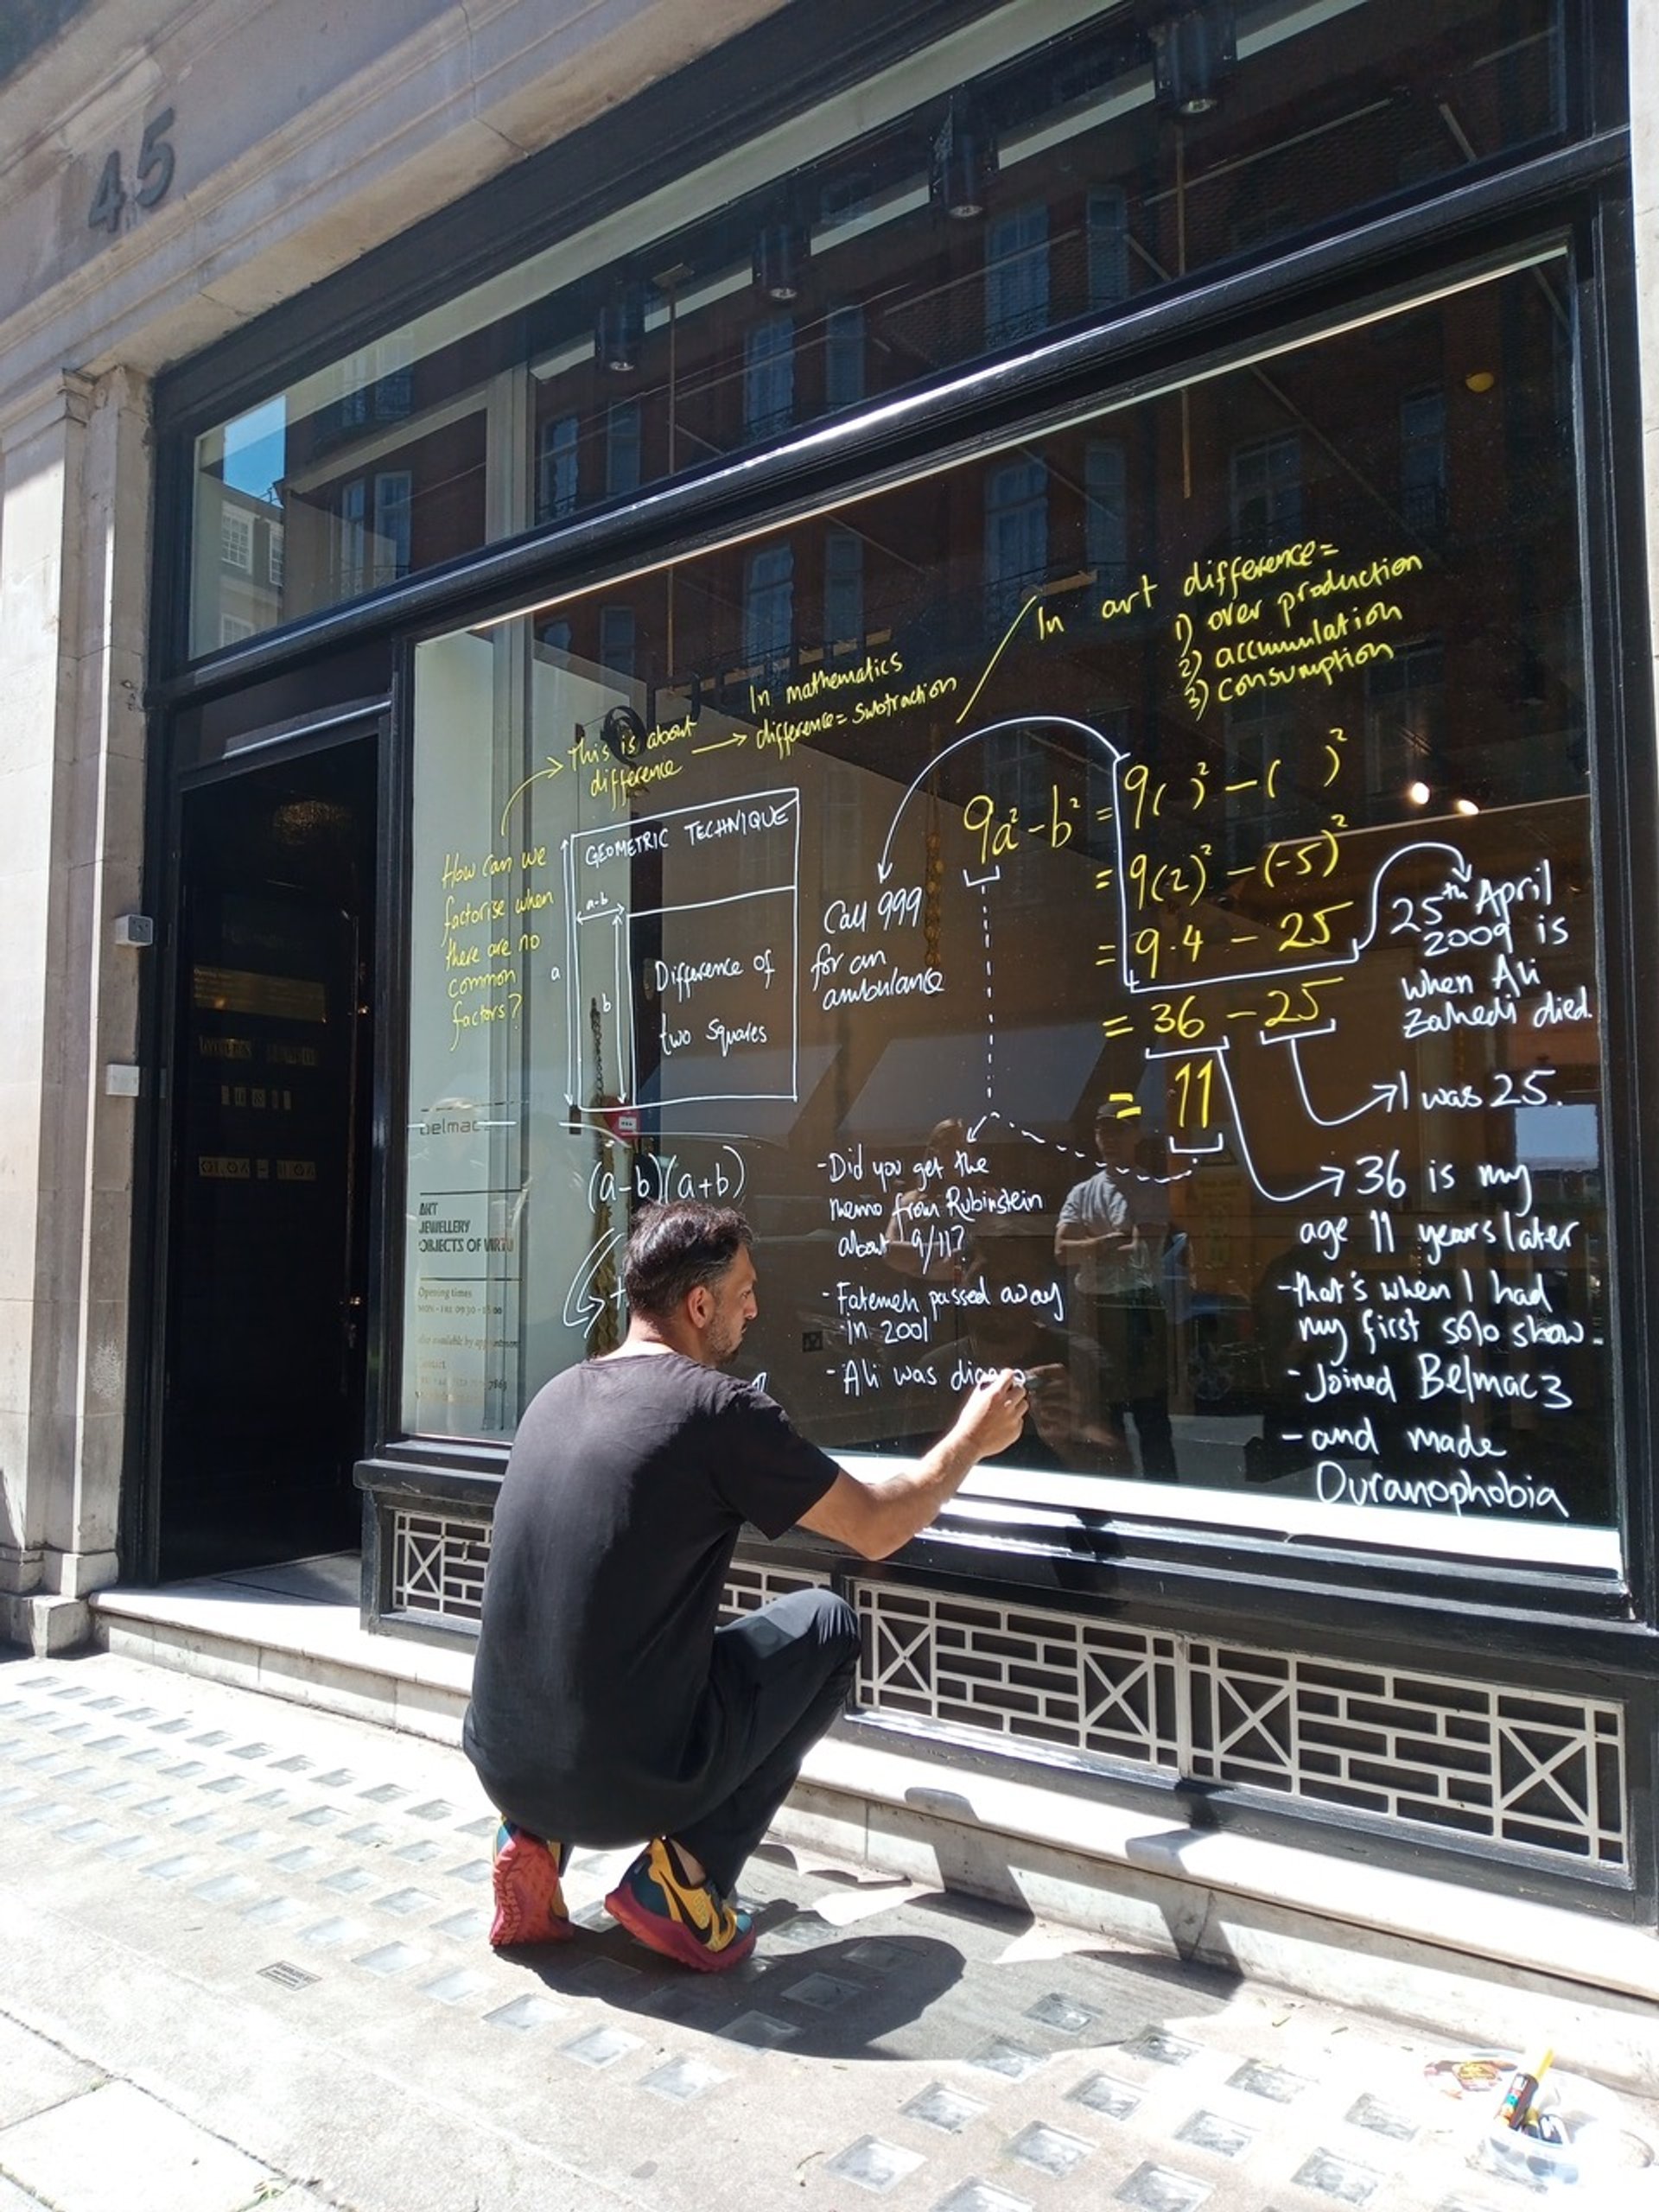 45
In art difference=
1) over production
2) accumulation
3) consumption
In mathematics
difference= subtraction
This is about
difference
How can we
factorise when
there are no
common
factors?
GEOMETRIC TECHNIQUE
a-b
a
b
Difference of
two squares
(a-b)(a+b)
Call 999
for an
ambulance
9a²-b² = 9( )² - ( )²
= 9(2)² - (-5)²
= 9.4 - 25
= 36 - 25
= 11
25th April
2009 is
when Ali
Zahedi died.
I was 25.
36 is my
age 11 years later
-that's when I had
my first solo show.
-Joined Belmacz
-and made
Ouranophobia
-Did you get the
memo from Rubinstein
about 9/11?
-Fatemeh passed away
in 2001
-Ali was diagno
belmac
ART
JEWELLERY
OBJECTS OF VIRTU
Opening times